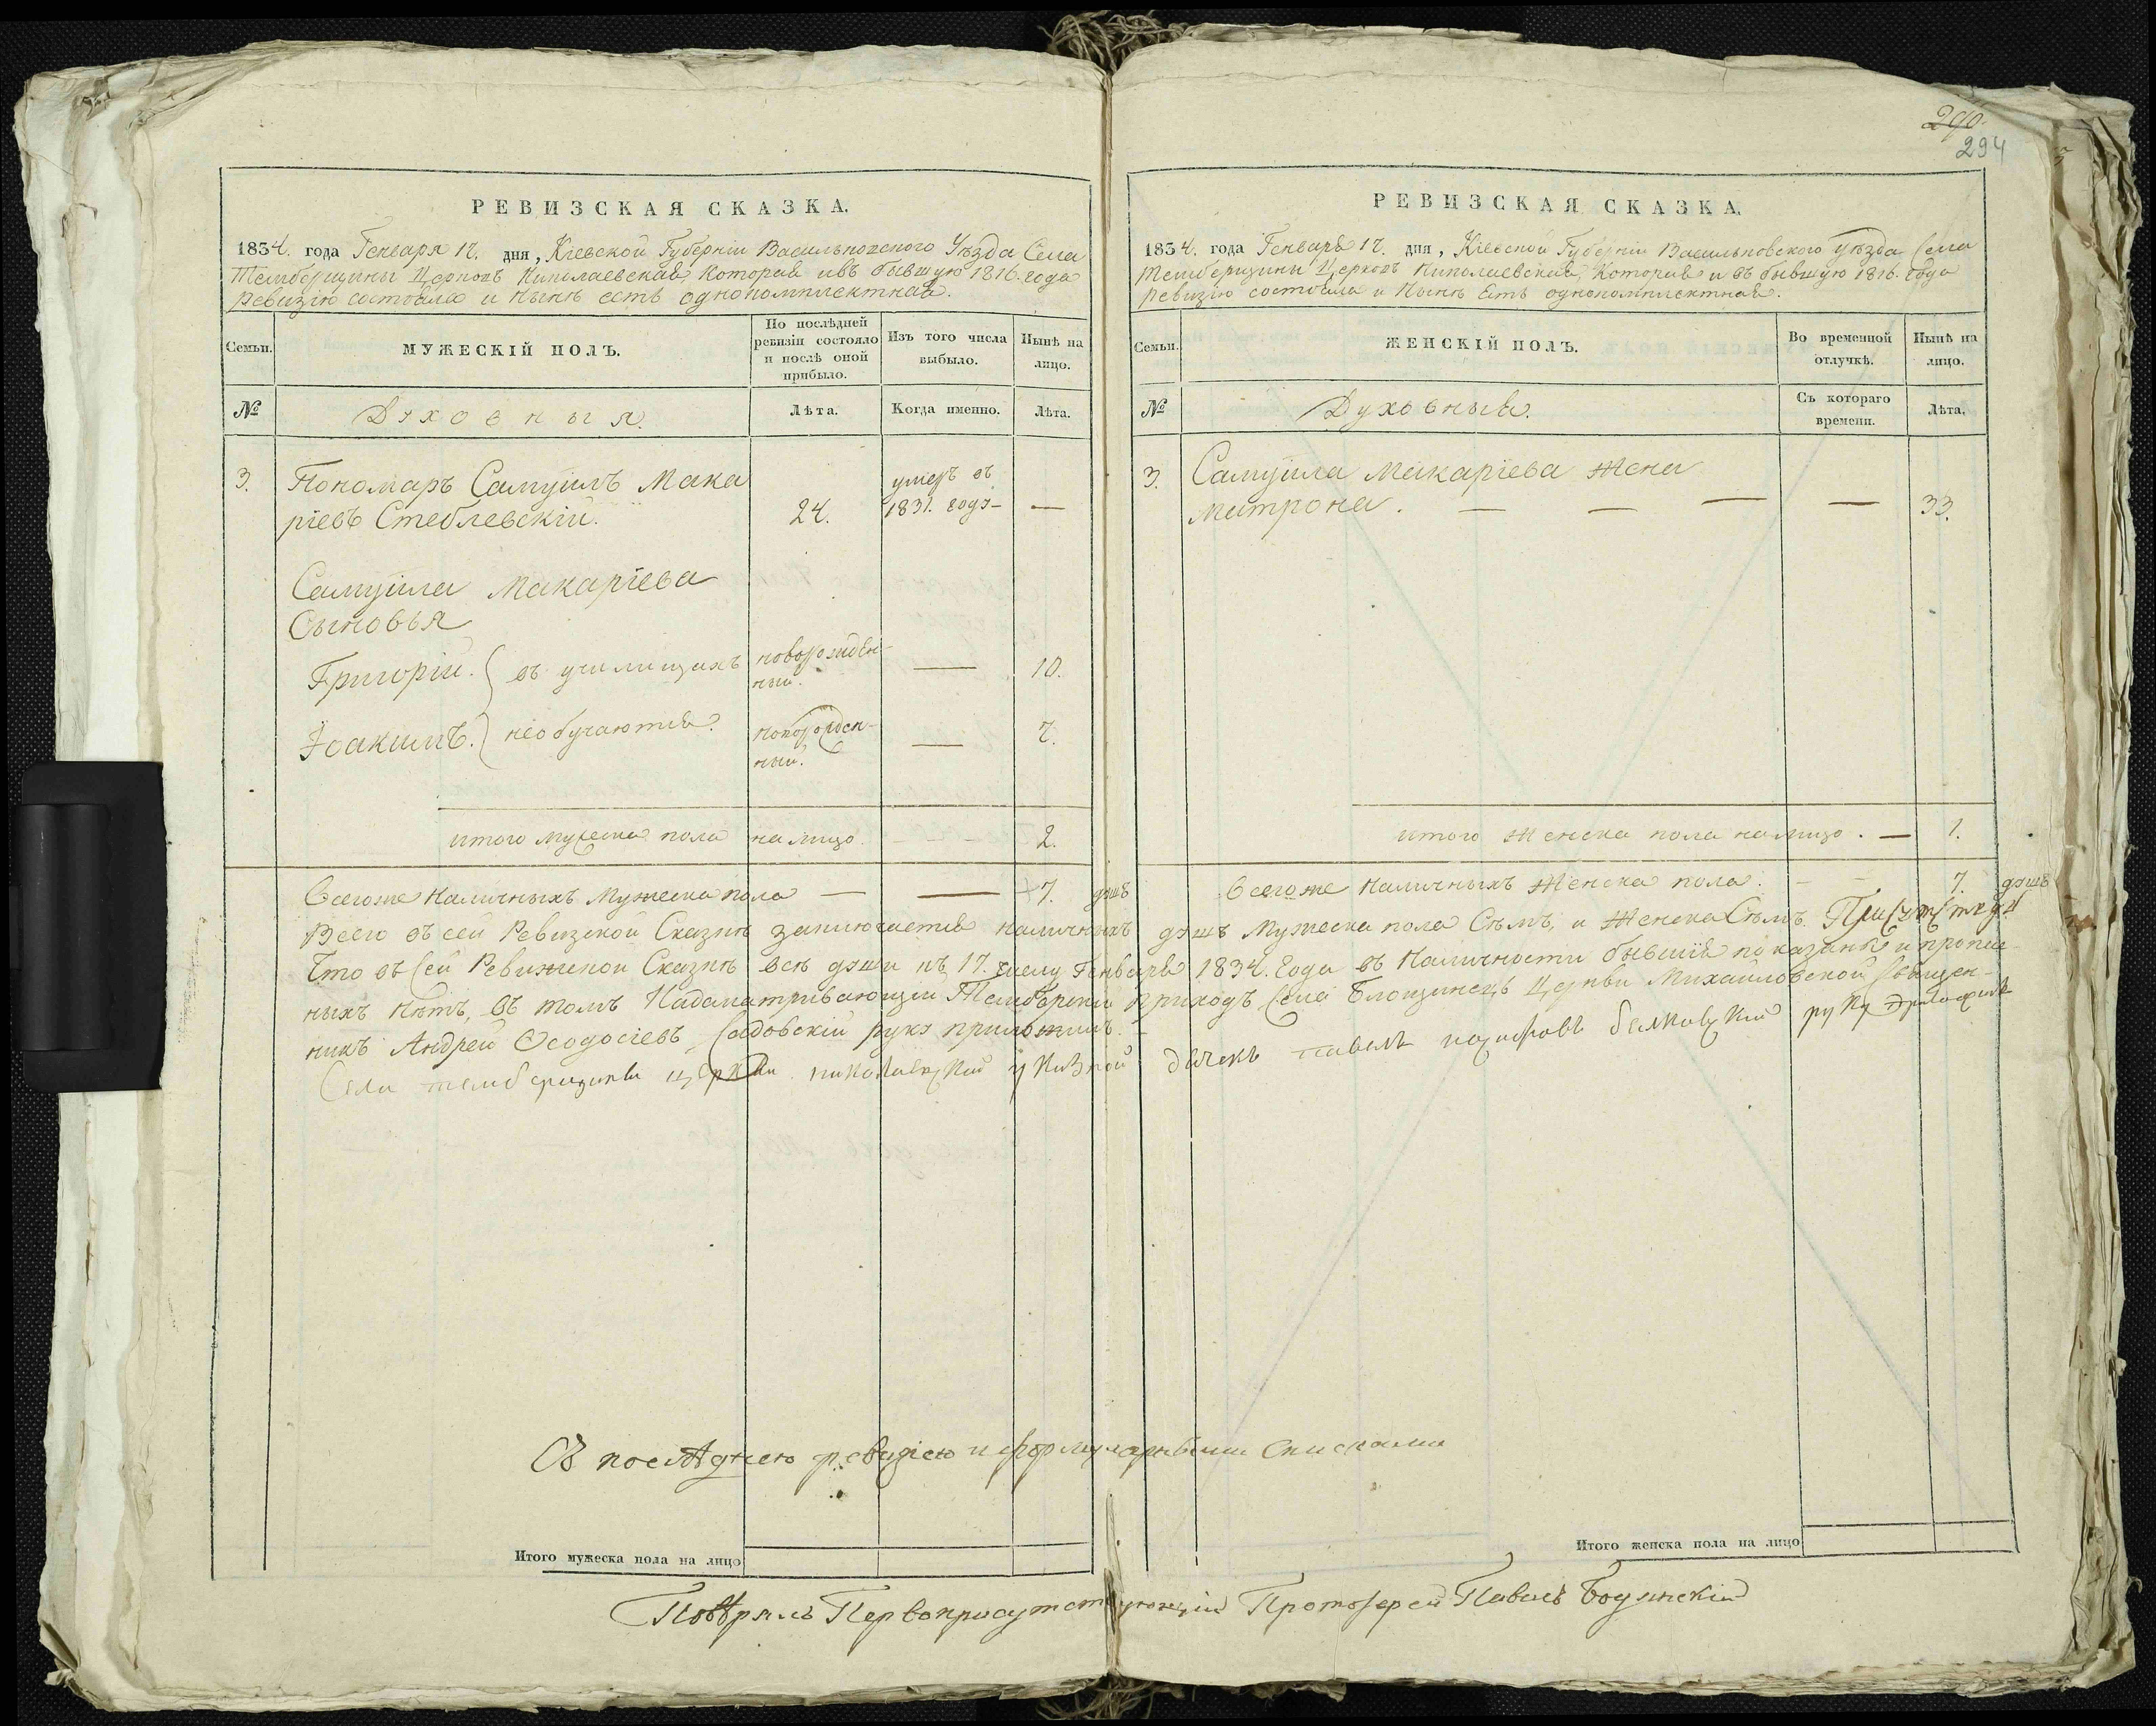 290.
294
РЕВИЗСКАЯ СКАЗКА.
1834. года Генваря 17. дня, Кіевской Губерніи Васильковского Уѣзда Села
Темберщины Церковъ Николаевская, которая и въ бывшую 1816. года
ревизію состояла и нынѣ есть однокомплектная.
Семьи.
МУЖЕСКІЙ ПОЛЪ.
По послѣдней ревизіи состояло и послѣ оной прибыло.
Изъ того числа выбыло.
Нынѣ на лицо.
№
Духовныя.
Лѣта.
Когда именно.
Лѣта.
3. Пономарь Самуилъ Мака умеръ въ
ріевъ Стеблевскій. 24. 1831. году — —
Самуила Макаріева
Сыновья
Григорій. въ училищахъ новорожден-
ный. — 10.
Іоакимъ. необучаются. новорожден-
ный. — 7.
итого мужеска пола на лицо 2.
Всегоже наличныхъ мужеска пола — — 7. душъ
РЕВИЗСКАЯ СКАЗКА.
1834. года Генваря 17. дня, Кіевской Губерніи Васильковского уѣзда Села
Темберщины Церковъ Николаевская, которая и въ бывшую 1816. года
ревизію состояла и нынѣ есть однокомплектная.
Семьи.
ЖЕНСКІЙ ПОЛЪ.
Во временной отлучкѣ.
Нынѣ на лицо.
№
Духовныя.
Съ котораго времени.
Лѣта.
3. Самуила Макаріева жена
Матрона. — — — — 33.
итого женска пола на лицо. — 1.
Всегоже наличныхъ женска пола. 7. душъ
Всего въ сей Ревизской Сказкѣ заключается наличныхъ душъ мужеска пола Сѣмъ, и женска Сѣмъ.
Что въ сей Ревизской Сказкѣ всѣ души къ 17. числу Генваря 1834. Года въ наличности бывшія показаны и пропис-
ныхъ нѣтъ, въ томъ Надсматривающій Темберскій приходъ, села Блощинецъ Церкви Михайловской Священ-
никъ Андрей Ѳеодосіевъ Садовскій руку приложилъ.
Села темберщины церкви николаевской указной дячекъ павелъ белковский руку приложилъ
Съ последнею ревизіею и формулярными Списками
Итого мужеска пола на лицо
Итого женска пола на лицо
Повѣрялъ Первоприсутствующій Протоіерей Павелъ Бодянскій